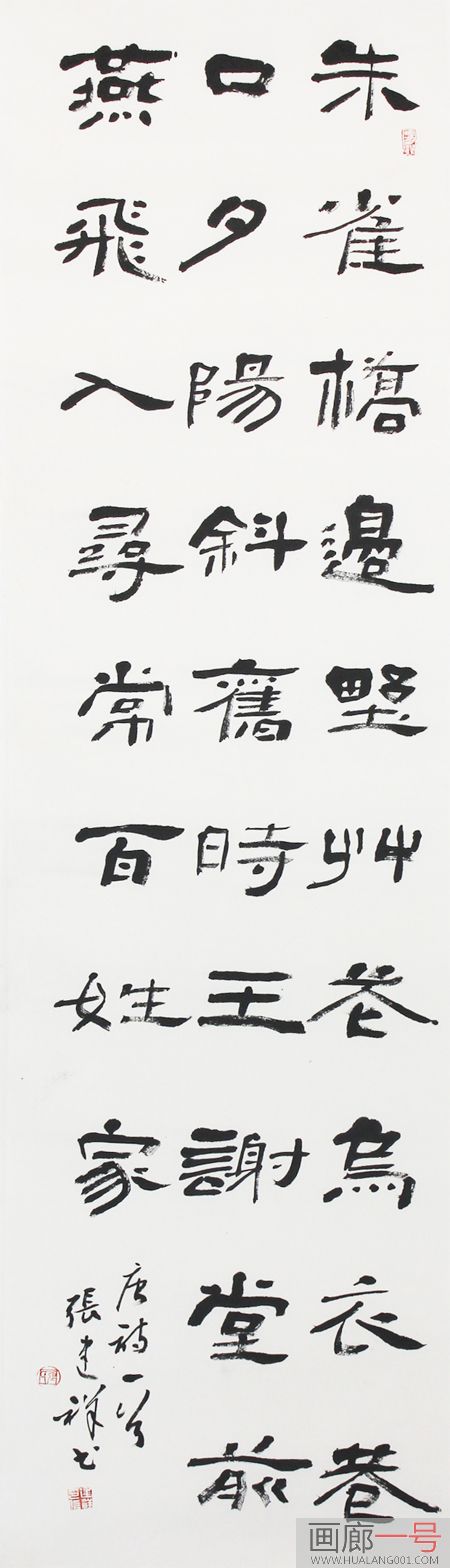 朱雀橋邊野艸花烏衣巷
口夕陽斜舊時王謝堂前
燕飛入尋常百姓家
唐詩一首
張建祥书
画廊一号
WWW.HUALANG001.COM